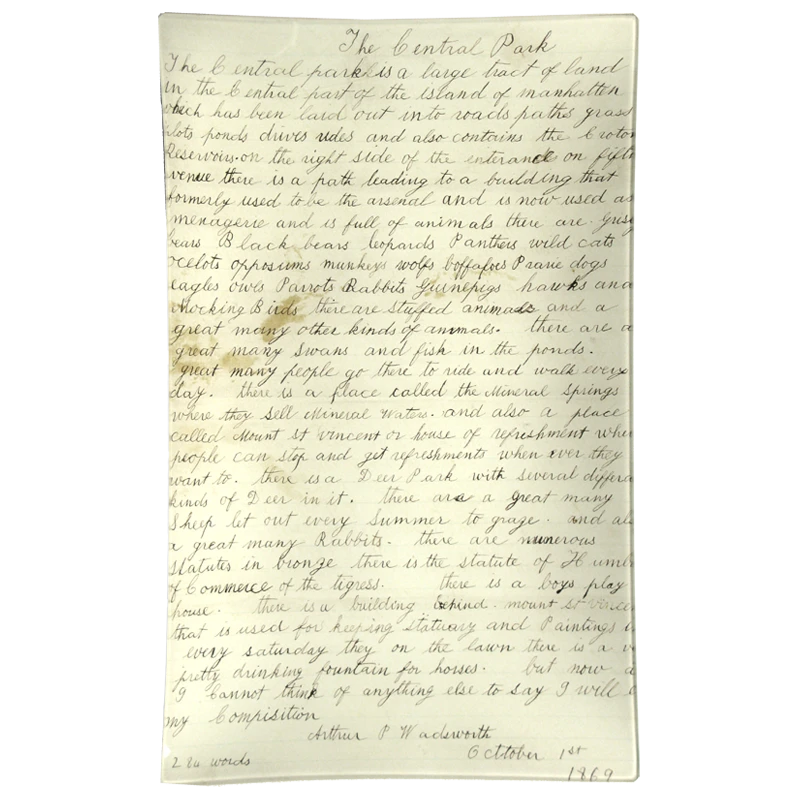 The Central Park
The Central park is a large tract of land
in the Central part of the island of manhatten
which has been laid out into roads paths grass
plots ponds drives rides and also contains the Croton
Reservoirs. on the right side of the enterance on fifth
venue there is a path leading to a building that
formerly used to be the arsenal and is now used as
menagerie and is full of animals there are. Grisy
bears Black bears leopards Panthers wild cats
ocelots opposums munkeys wolfs boffafoes Prarie dogs
eagles owls Parrots Rabbits Guinepigs hawks and
Mocking Birds there are stuffed animals and a
great many other kinds of animals. there are a
great many swans and fish in the ponds.
great many people go there to ride and walk every
day. there is a place called the Mineral Springs
where they sell Mineral Waters. and also a place
called Mount St Vincent or house of refreshment wher
people can stop and get refreshments when ever they
want to. there is a Deer Park with several differa
kinds of Deer in it. there are a great many
Sheep let out every Summer to graze. and als
a great many Rabbits. there are numerous
statutes in bronze there is the statute of Humb
of Commerce of the tigress. there is a boys play
house. there is a building behind. mount st vincen
that is used for keeping statuary and Paintings i
every saturday they on the lawn there is a v
pretty drinking fountain for horses. but now a
I Cannot think of anything else to say I will e
my Compisition
Arthur P Wadsworth
Octtober 1st
1869
words